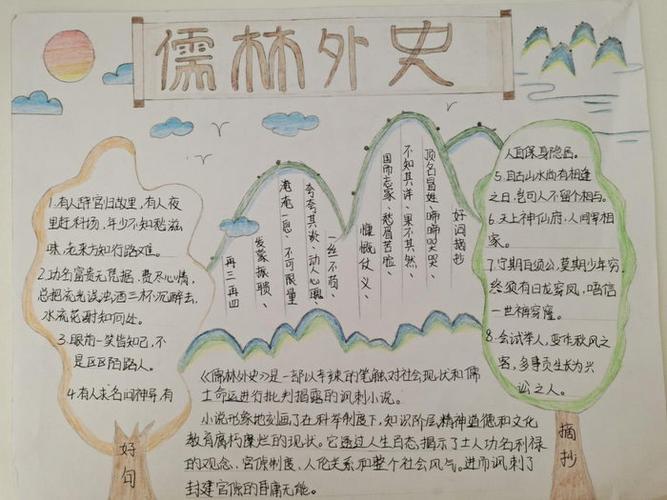 儒林外史
1.有人辞官归故里,有人夜
里赶科场,年少不知愁滋
味,老来方知行路难。
2.功名富贵无凭据,费尽心情,
总把流光误浊酒三杯沉醉去,
水流花谢知何处。
3.眼前一笑皆知己,不
是区区陌路人。
4.有人未名门神寻,有
好句
好词摘抄
顶名冒姓、啼啼哭哭、
不知其详、果不其然、
国而忘家、愁眉苦脸、
慷慨仗义、
一丝不苟、
夸夸其谈、动人心
奄奄一息、不可限量
发蒙振聩、
再三再四
人自保身隐居。
5.自古山水尚有相逢
之日,岂可人不留个相与。
6.天上神仙府,人间宰相
家。
7.守期自须公,莫期少年穷,
终须有日龙穿凤,唔信
一世裤穿窿。
8.会试举人,变作秋风之
客,多事贡生长为兴
讼之人。
摘抄
《儒林外史》是一部以辛辣的笔触对社会现状和儒
士命运进行批判揭露的讽刺小说。
小说形象地刻画了在科举制度下,知识阶层精神道德和文化
教育腐朽糜烂的现状。它通过人生百态,揭示了士人功名利禄
的观念、官僚制度、人伦关系和整个社会风气。进而讽刺了
封建官僚的昏庸无能。